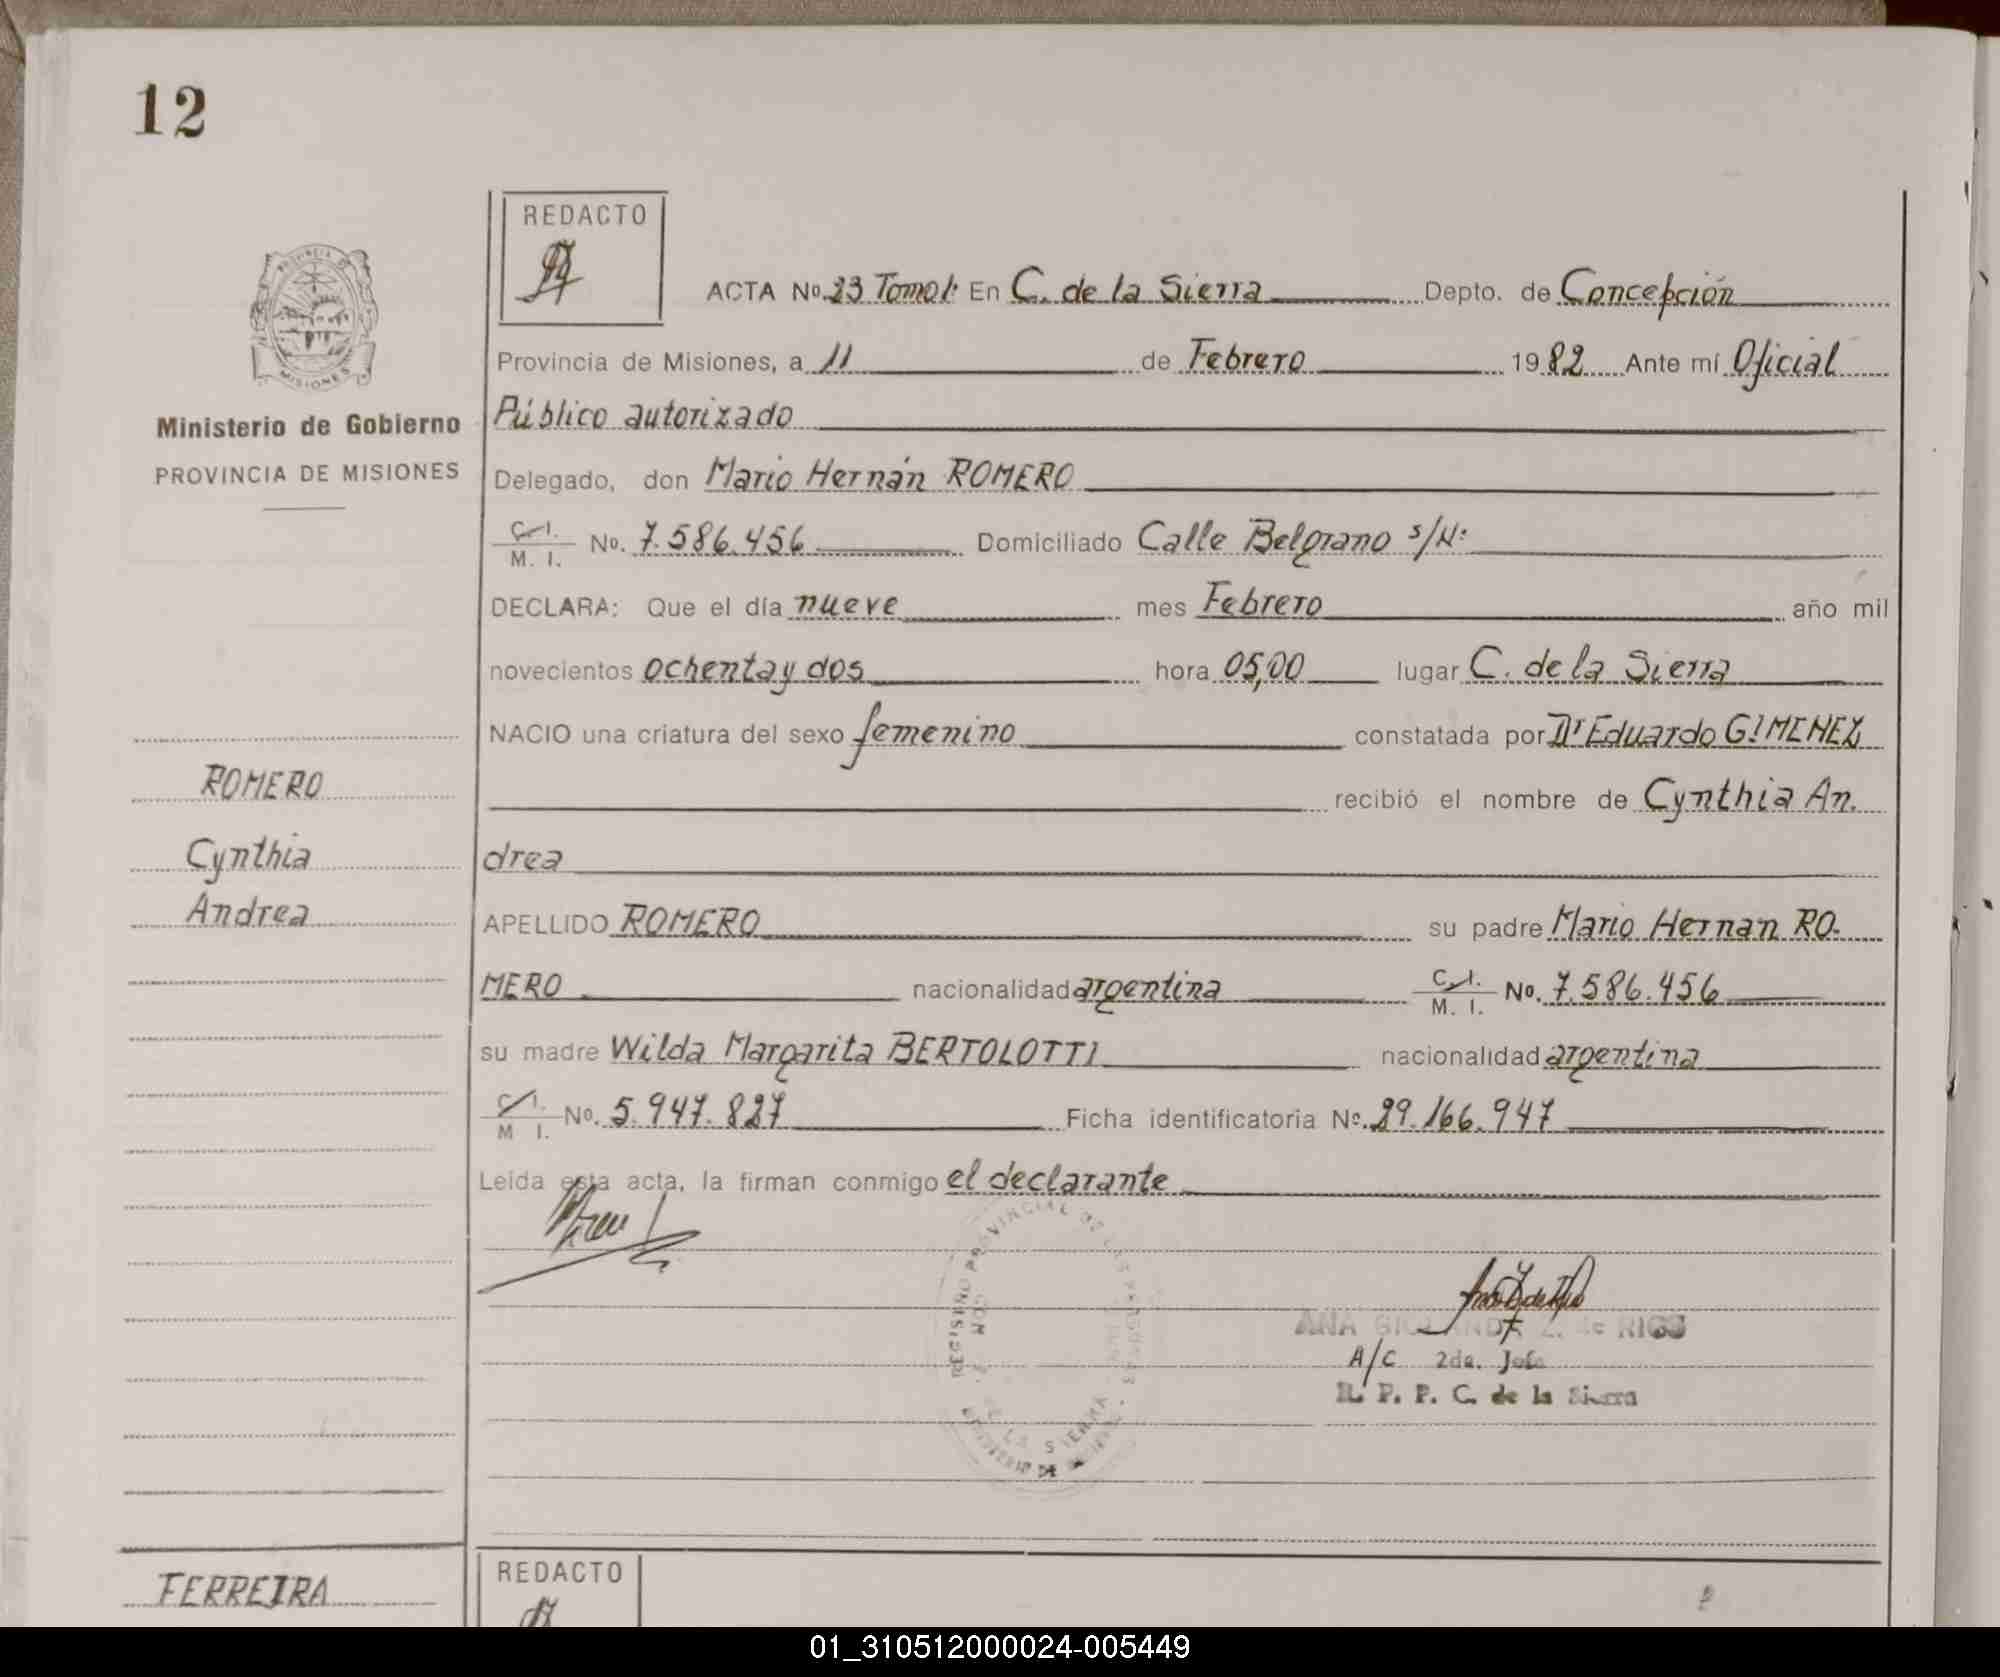 12
REDACTO
ACTA No. 23 Tomo 1: En C. de la Sierra Depto. de Concepción
PROVINCIA DE
MISIONES
Provincia de Misiones, a 11 de Febrero 1982 Ante mí Oficial
Ministerio de Gobierno
PROVINCIA DE MISIONES
Público autorizado
Delegado, don Mario Hernán ROMERO
C. I.
M. I. No. 7.586.456 Domiciliado Calle Belgrano s/N:
DECLARA: Que el día nueve mes Febrero año mil
novecientos ochenta y dos hora 05,00 lugar C. de la Sierra
NACIO una criatura del sexo femenino constatada por Dr Eduardo GIMENEZ
recibió el nombre de Cynthia An.
drea
ROMERO
Cynthia
Andrea
APELLIDO ROMERO su padre Mario Hernan RO-
MERO nacionalidad argentina C. I.
M. I. No. 7.586.456
su madre Wilda Margarita BERTOLOTTI nacionalidad argentina
C. I.
M I. No. 5.947.827 Ficha identificatoria No. 29.166.947
Leída esta acta, la firman conmigo el declarante
REGISTRO PROVINCIAL DE LAS PERSONAS
LA SIERRA
MINISTERIO DE
ANA Z. de RIOS
A/C 2da. Jefa
R. P. P. C. de la Sierra
FERREIRA
REDACTO
01_310512000024-005449